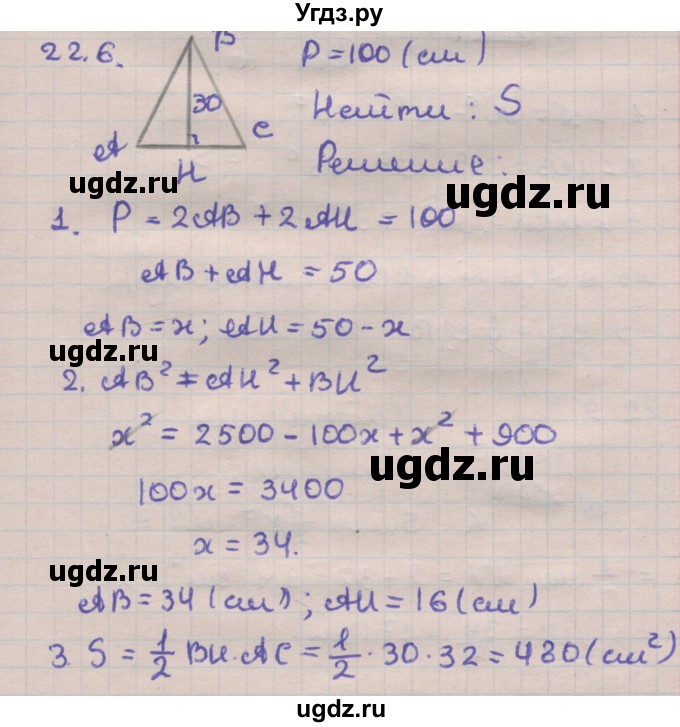 Угдз.ру
22.6.
B
P = 100 (см)
30
Найти : S
A
C
H
Решение :
ugdz.ru
1. P = 2AB + 2AH = 100
ugdz.ru
AB + AH = 50
AB = x; AH = 50 - x
ugdz.ru
2. AB² = AH² + BH²
x² = 2500 - 100x + x² + 900
ugdz.ru
100x = 3400
x = 34.
ugdz.ru
AB = 34 (см); AH = 16 (см)
3. S = 1/2 BH · AC = 1/2 · 30 · 32 = 480 (см²)
ugdz.ru
ugdz.ru